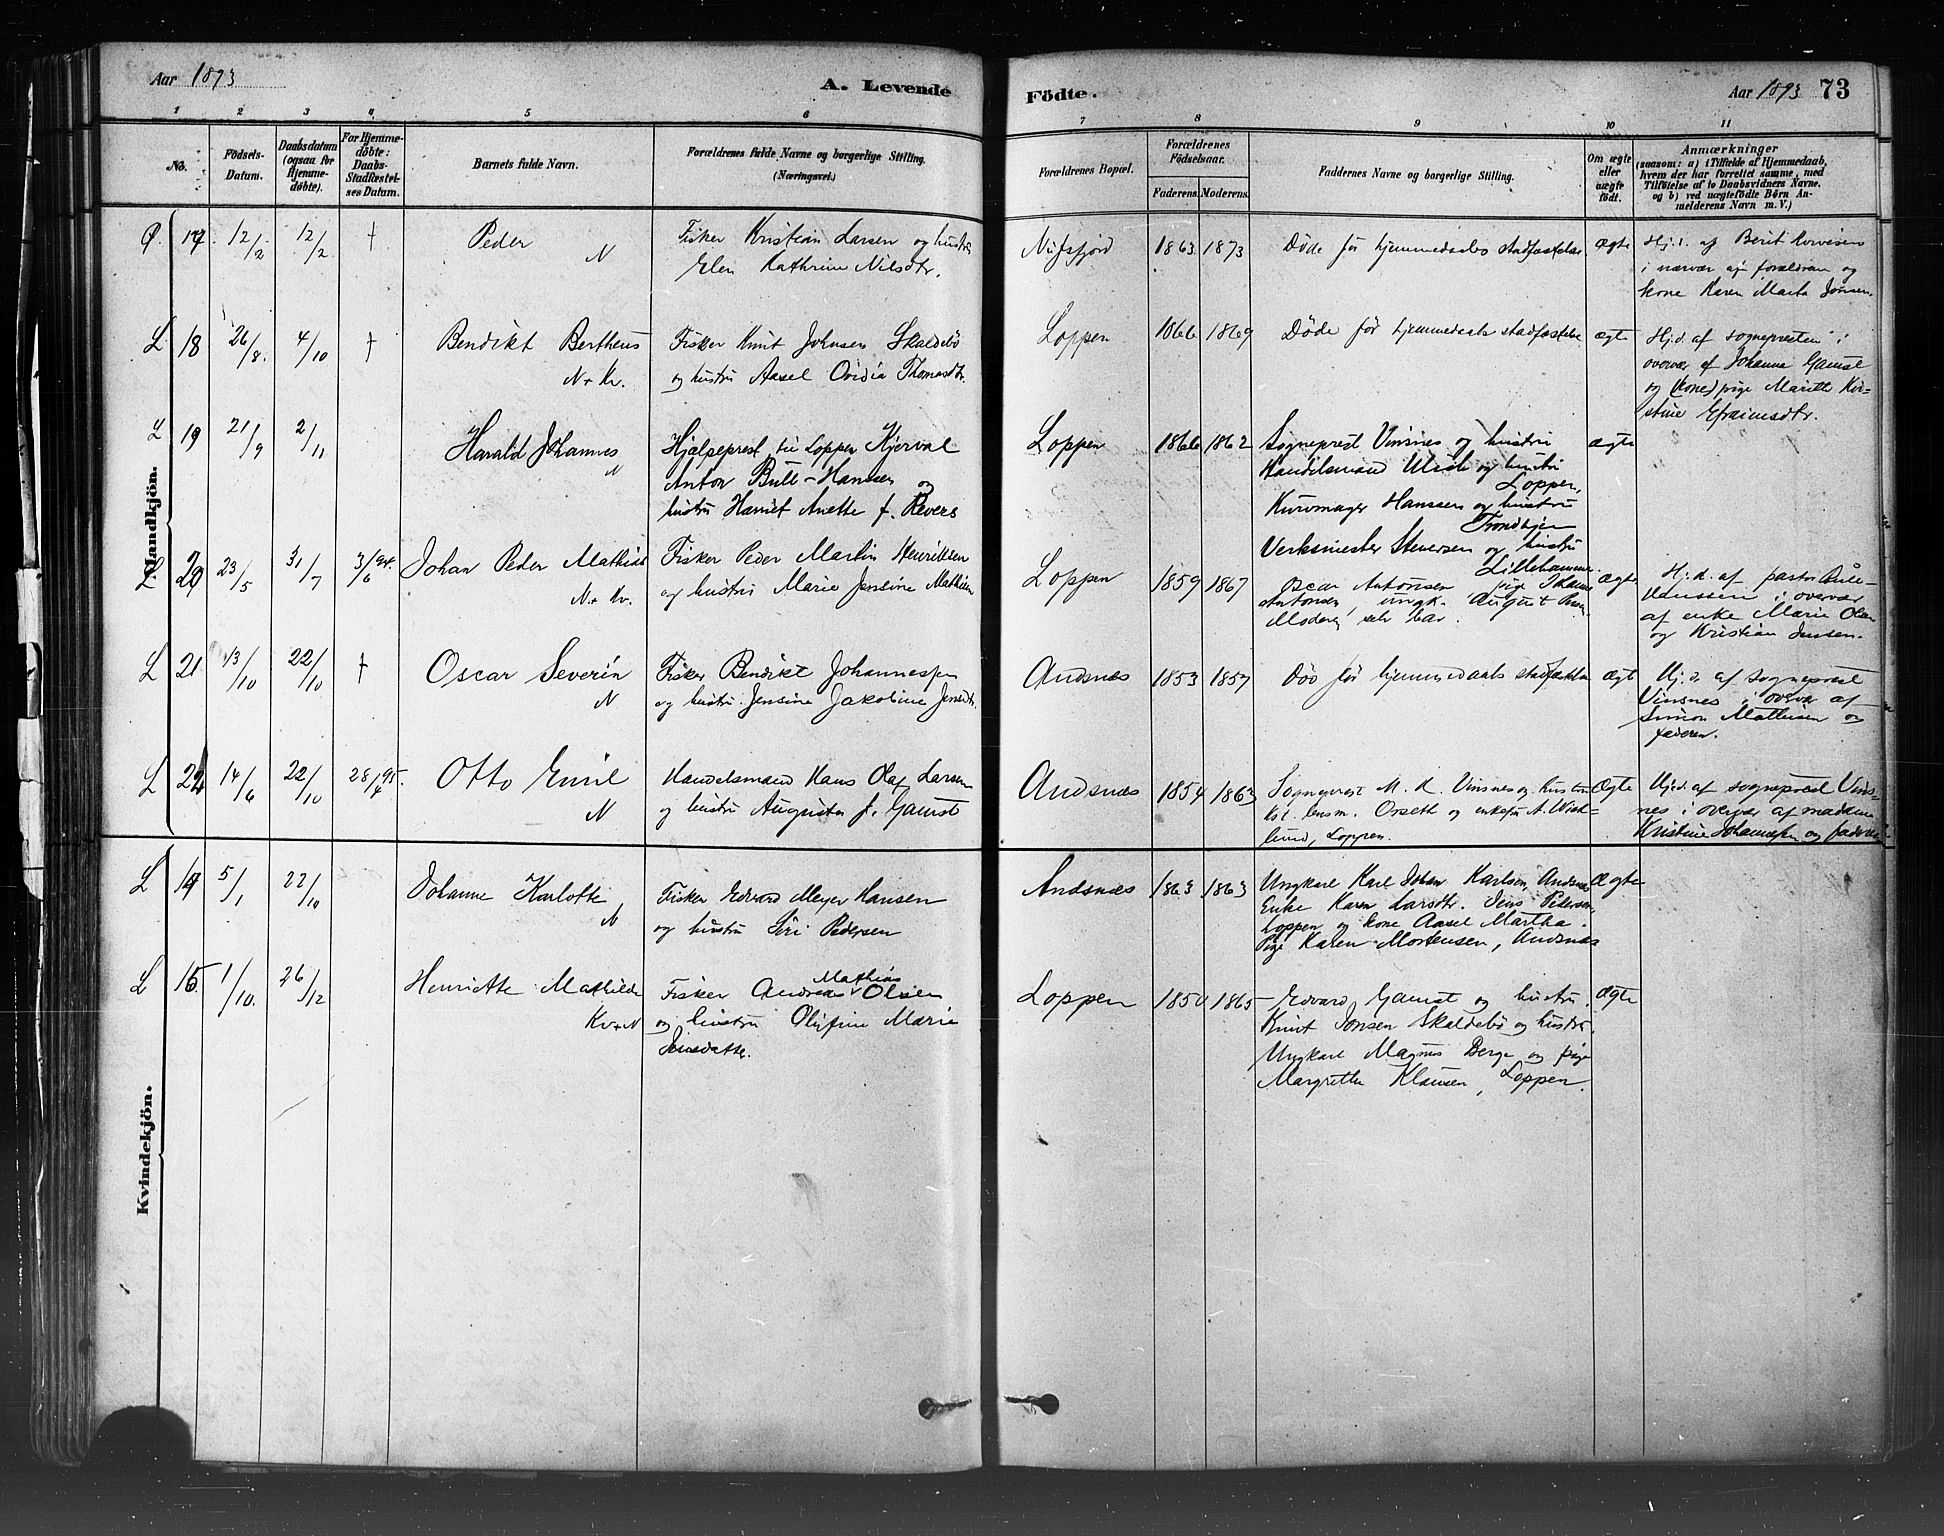 Aar 1893
A. Levende
Födte.
Aar 1893 73
1 2 3 4 5 6 7 8 9 10 11
No.
Födsels-
Datum.
Daabsdatum
(ogsaa for
Hjemme-
döbte).
For Hjemme-
döbte:
Daabs-
Stadfæstel-
ses Datum.
Barnets fulde Navn.
Forældrenes fulde Navne og borgerlige Stilling.
(Næringsvei.)
Forældrenes Bopæl.
Forældrenes
Födselsaar.
Faderens. Moderens.
Faddernes Navne og borgerlige Stilling.
Om ægte
eller
uægte
födt.
Anmærkninger
(saasom: a) i Tilfælde af Hjemmedaab,
hvem der har forrettet samme, med
Tilföielse af to Daabsvidners Navne.
og b) ved uægtefödte Börn An-
melderens Navn m. V.)
Mandkjön.
17 12/2 12/2 † Peder
N
Fisker Kristian Larsen og hustru
Elen Kathrine Nilsdtr.
1863 1873
Döde för hjemmedaabs stadfæstelse.
ægte
Hj.d. af Berit
i nærvær af forældrene og
kone Karen Marta Jonsen.
L 18 26/8. 4/10 † Bendikt Bertheus
N + Kv.
Fisker Knut Johnsen Skaldebö
og hustru Aasel Ovidia Thomasdtr.
Loppen 1866 1869
Döde för hjemmedaabs stadfæstelse
ægte
Hj.d. af sognepresten i
overvær af Johanna Gamst
og (kone) pige Marith Kir-
stine Efraimsdtr.
L 19 21/9 2/11 Harald Johannes
N
Hjælpeprest til Loppen Kjerval
Anton Bull-Hanssen og
hustru Harriet Anette f. Revers
Loppen 1866 1862
Sogneprest Vinsnes og hustru
Handelsmand og hustru
Loppen,
Hanssen og hustru
Trondhjem
Verksmester Stenersen og hustru
Lillehammer
ægte
L 20 23/5 31/7 3/6 94. Johan Peder Mathias
N + Kv.
Fisker Peder Martin Henriksen
og hustru Marie Jensine Mathisen
Loppen 1859 1867
Oscar Antonsen pige
Antonsen, ungk. August
Moderen selv bar.
ægte
Hj.d. af pastor Bull-
Hanssen i overvær
af enke Marie Olsen
og Kristian Jensen.
L 21 13/10 22/10 † Oscar Severin
N
Fisker Bendikt Johannesen
og hustru Jensine Jakobine Jensdtr.
Andsnæs 1853 1857
Död för hjemmedaabs stadfæstelse
ægte
Hj.d. af sogneprest
Vinsnes i overvær af
Simon Mathisen og
faderen.
L 22 14/6 22/10 28/4 95. Otto Emil
N
Handelsmand Hans Olaf Larsen
og hustru Augusta f. Gamst
Andsnæs 1854 1863
Sogneprest M. R. Vinsnes og hustru
Kst. lensm. Orseth og enkefru A. Wiik-
lund, Loppen.
Ægte
Hj.d. af sogneprest Vins-
nes i overvær af madame
Kristine Johannesen og faderen.
Kvindekjön.
L 14 5/1 22/10 Johanne Karlotte
N
Fisker Edvard Meyer Hansen
og hustru Siri Pedersen
Andsnæs 1863 1863
Ungkarl Karl Johan Karlsen Andsnæs
Enke Karen Larsdtr. Jens Pedersen,
Loppen og kone Aasel Martha.
Pige Karen Mortensen, Andsnæs
Ægte
L 15 1/10. 26/12 Henriette Mathilde
Kv + N
Fisker Andreas Mathias Olsen
og hustru Olufine Marie
Jensdatter.
Loppen 1850 1865
Edvard Gamst og hustru.
Knut Jonsen Skaldebö og hustru.
Ungkarl Magnus Berge og pige
Margrethe Klausen, Loppen.
Ægte